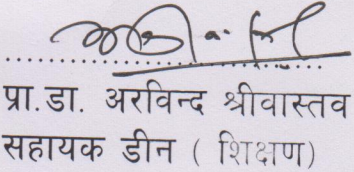 प्रा.डा. अरविन्द श्रीवास्तव
सहायक डीन ( शिक्षण)